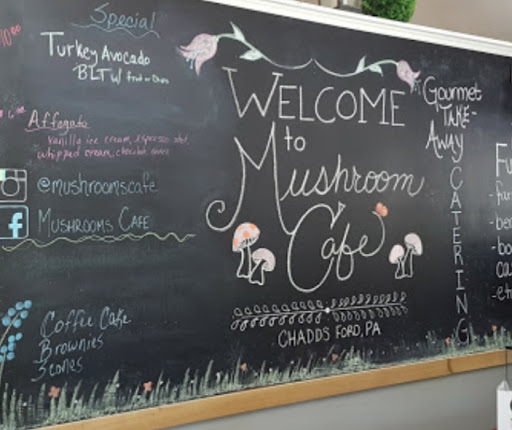 Special
10.00
Turkey Avocado
BLTW fruit or Chips
Affogato
vanilla ice cream, espresso shot,
whipped cream, chocolate
@mushroomscafe
f MUSHROOMS CAFE
Coffee Cake
Brownies
Scones
WELCOME
to
Mushroom
Cafe
CHADDS FORD, PA
Gourmet
TAKE-
AWAY
CATERING